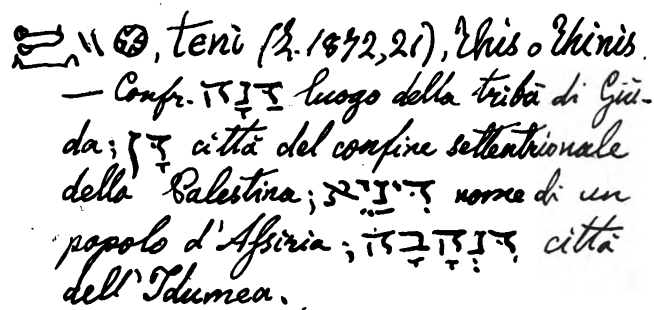 , teni (Z. 1872, 21), This o Thinis.
— Confr. דַנָה luogo della tribù di Giu-
da; דָן città del confine settentrionale
della Palestina; דִינָיֵא nome di un
popolo d'Assiria; דִנְהָבָה città
dell'Idumea.